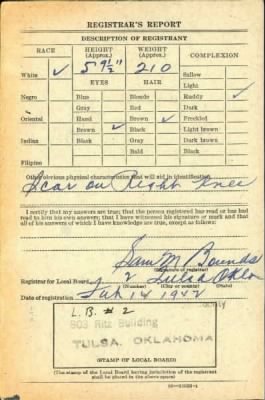 REGISTRAR'S REPORT
DESCRIPTION OF REGISTRANT
RACE HEIGHT (Approx.) WEIGHT (Approx.) COMPLEXION
White ✓ 5 9½" 210 Sallow
EYES HAIR Light
Ruddy ✓
Negro Blue Blonde
Gray Red Dark
Oriental Hazel Brown ✓ Freckled
Brown ✓ Black Light brown
Indian Black Gray Dark brown
Bald Black
Filipino
Other obvious physical characteristics that will aid in identification
Scar on Right Knee
I certify that my answers are true; that the person registered has read or has had
read to him his own answers; that I have witnessed his signature or mark and that
all of his answers of which I have knowledge are true, except as follows:
Sam M Bounds
(Signature of registrar)
Registrar for Local Board 2 Tulsa Okla
(Number) (City or county) (State)
Date of registration Feb 16 1942
L.B. # 2
803 Ritz Building
TULSA, OKLAHOMA
(STAMP OF LOCAL BOARD)
(The stamp of the Local Board having jurisdiction of the registrant
shall be placed in the above space.)